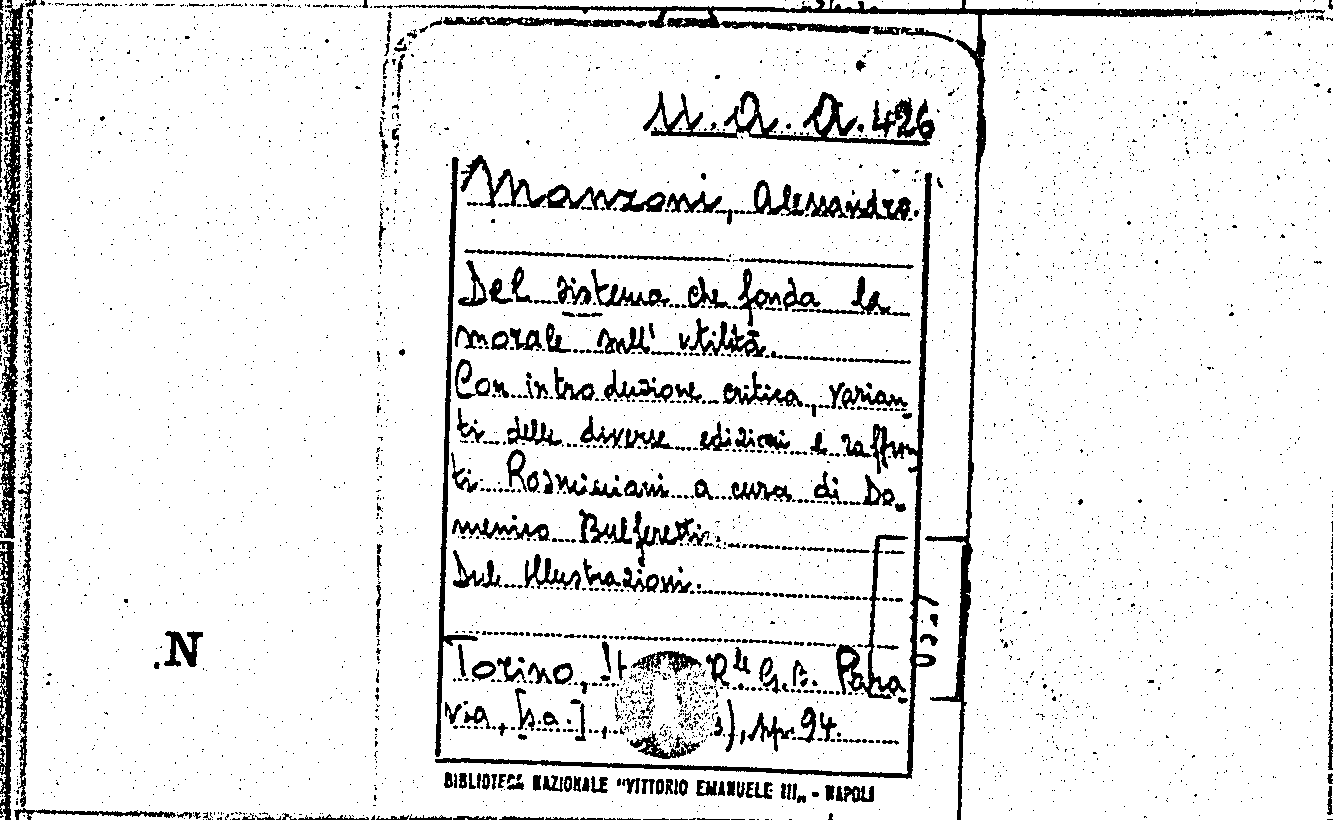 11. A. A. 426
Manzoni, Alessandro.
Del sistema che fonda la
morale sull' utilità.
Con introduzione critica, varian-
ti delle diverse edizioni e raffron-
ti Rosminiani a cura di Do-
menico Bulferetti.
Due Illustrazioni.
Torino, R.le G. B. Para-
via, [s.a.], pp. 94.
BIBLIOTECA NAZIONALE "VITTORIO EMANUELE III„ - NAPOLI
N.